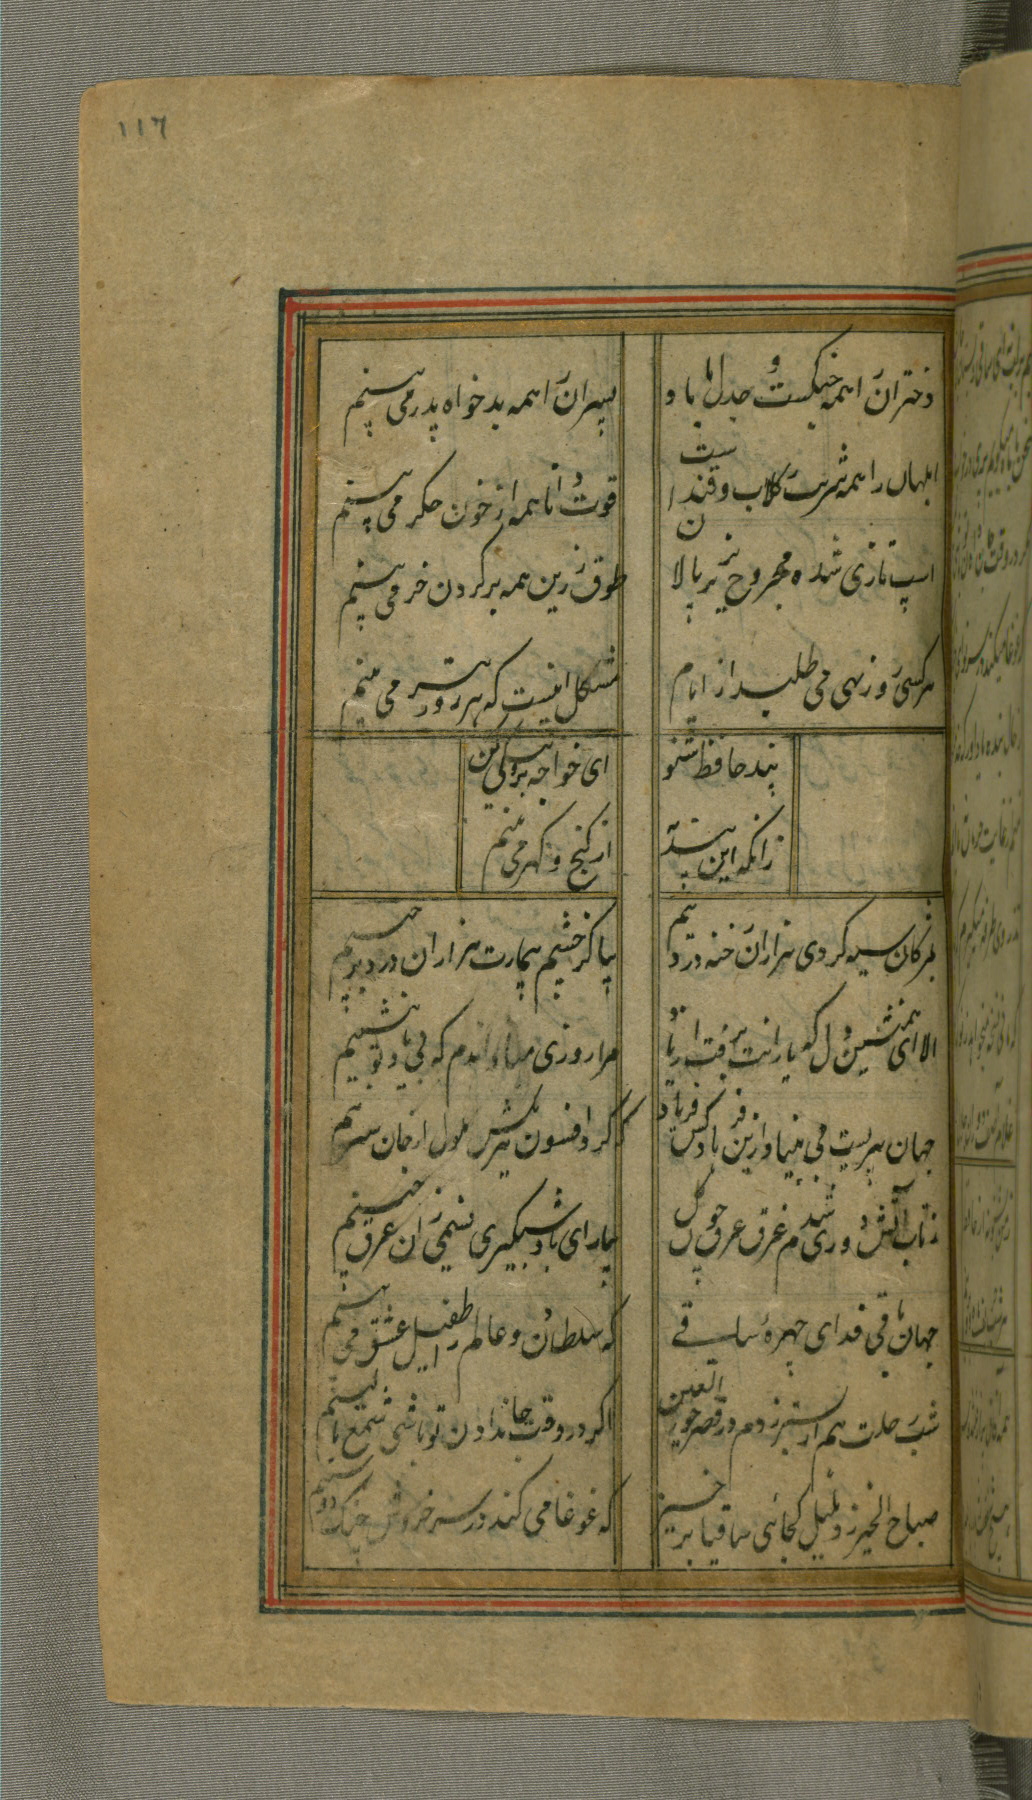 ١١٦
دختران را همه جنگست و جدل با مادر
پسران را همه بدخواه پدر می بینم
ابلهان را همه شربت ز گلاب و قندست
قوت دانا همه از خون جگر می بینم
اسپ تازی شده مجروح بزیر پالان
طوق زرین همه بر گردن خر می بینم
هر کسی روز بهی می طلبد از ایام
مشکل اینست که هر روز بتر می بینم
پند حافظ بشنو
ای خواجه برو نیکی کن
زانکه این پند به
از گنج و گهر می بینم
بمژگان سیه کردی هزاران رخنه در دینم
بیا کز چشم بیمارت هزاران درد برچینم
الا ای همنشین دل که یارانت برفت از یاد
مرا روزی مباد آندم که بی یاد تو بنشینم
جهان پیرست و بی بنیاد ازین فرهادکش فریاد
که کرد افسون و نیرنگش ملول از جان شیرینم
ز تاب آتش دوری شدم غرق عرق چون گل
بیار ای باد شبگیری نسیمی زان عرق چینم
جهان فانی و باقی فدای چهرهٔ ساقی
که سلطانی عالم را طفیل عشق می بینم
شب رحلت هم از بستر روم در قصر حور العین
اگر در وقت جاندادن تو باشی شمع بالینم
صباح الخیر زد بلبل کجائی ساقیا برخیز
که غوغا می کند در سر خروش چنگ دوشینم